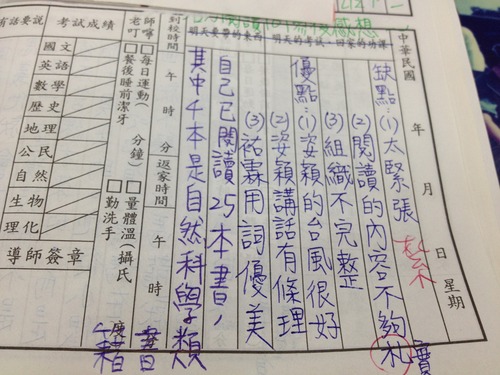 中華民國 年 月 日 星期
缺點:(1)太緊張
紮
(2)閱讀的內容不夠札實
(3)組織不完整
優點:(1)姿穎的台風很好
(2)姿穎講話有條理
(3)祐霖用詞優美
自己已閱讀25本書,
其中4本是自然科學類
書籍
感想
明天的考試、回家的功課
到校時間 午 時 分 返家時間 午 時
老師叮嚀
□每日運動( 分鐘) □量體溫(攝氏 度
□餐後睡前潔牙 □勤洗手
有話要說
考試成績
國文
英語
數學
歷史
地理
公民
自然
生物
理化
導師簽章